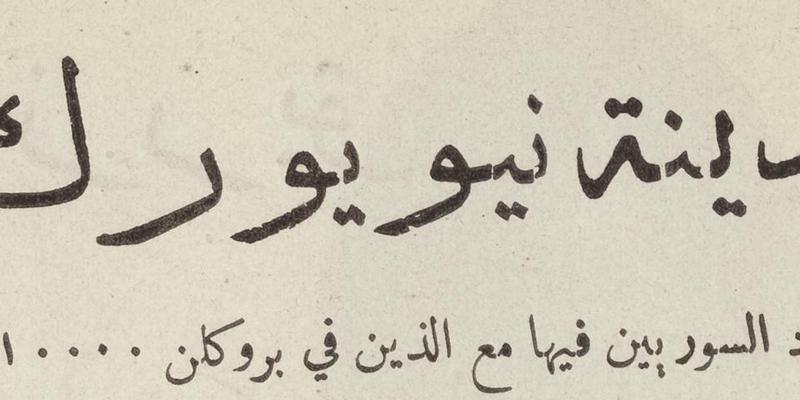 ينة نيو يورك
السوريين فيها مع الذين في بروكلن ٠٠٠٠ ا